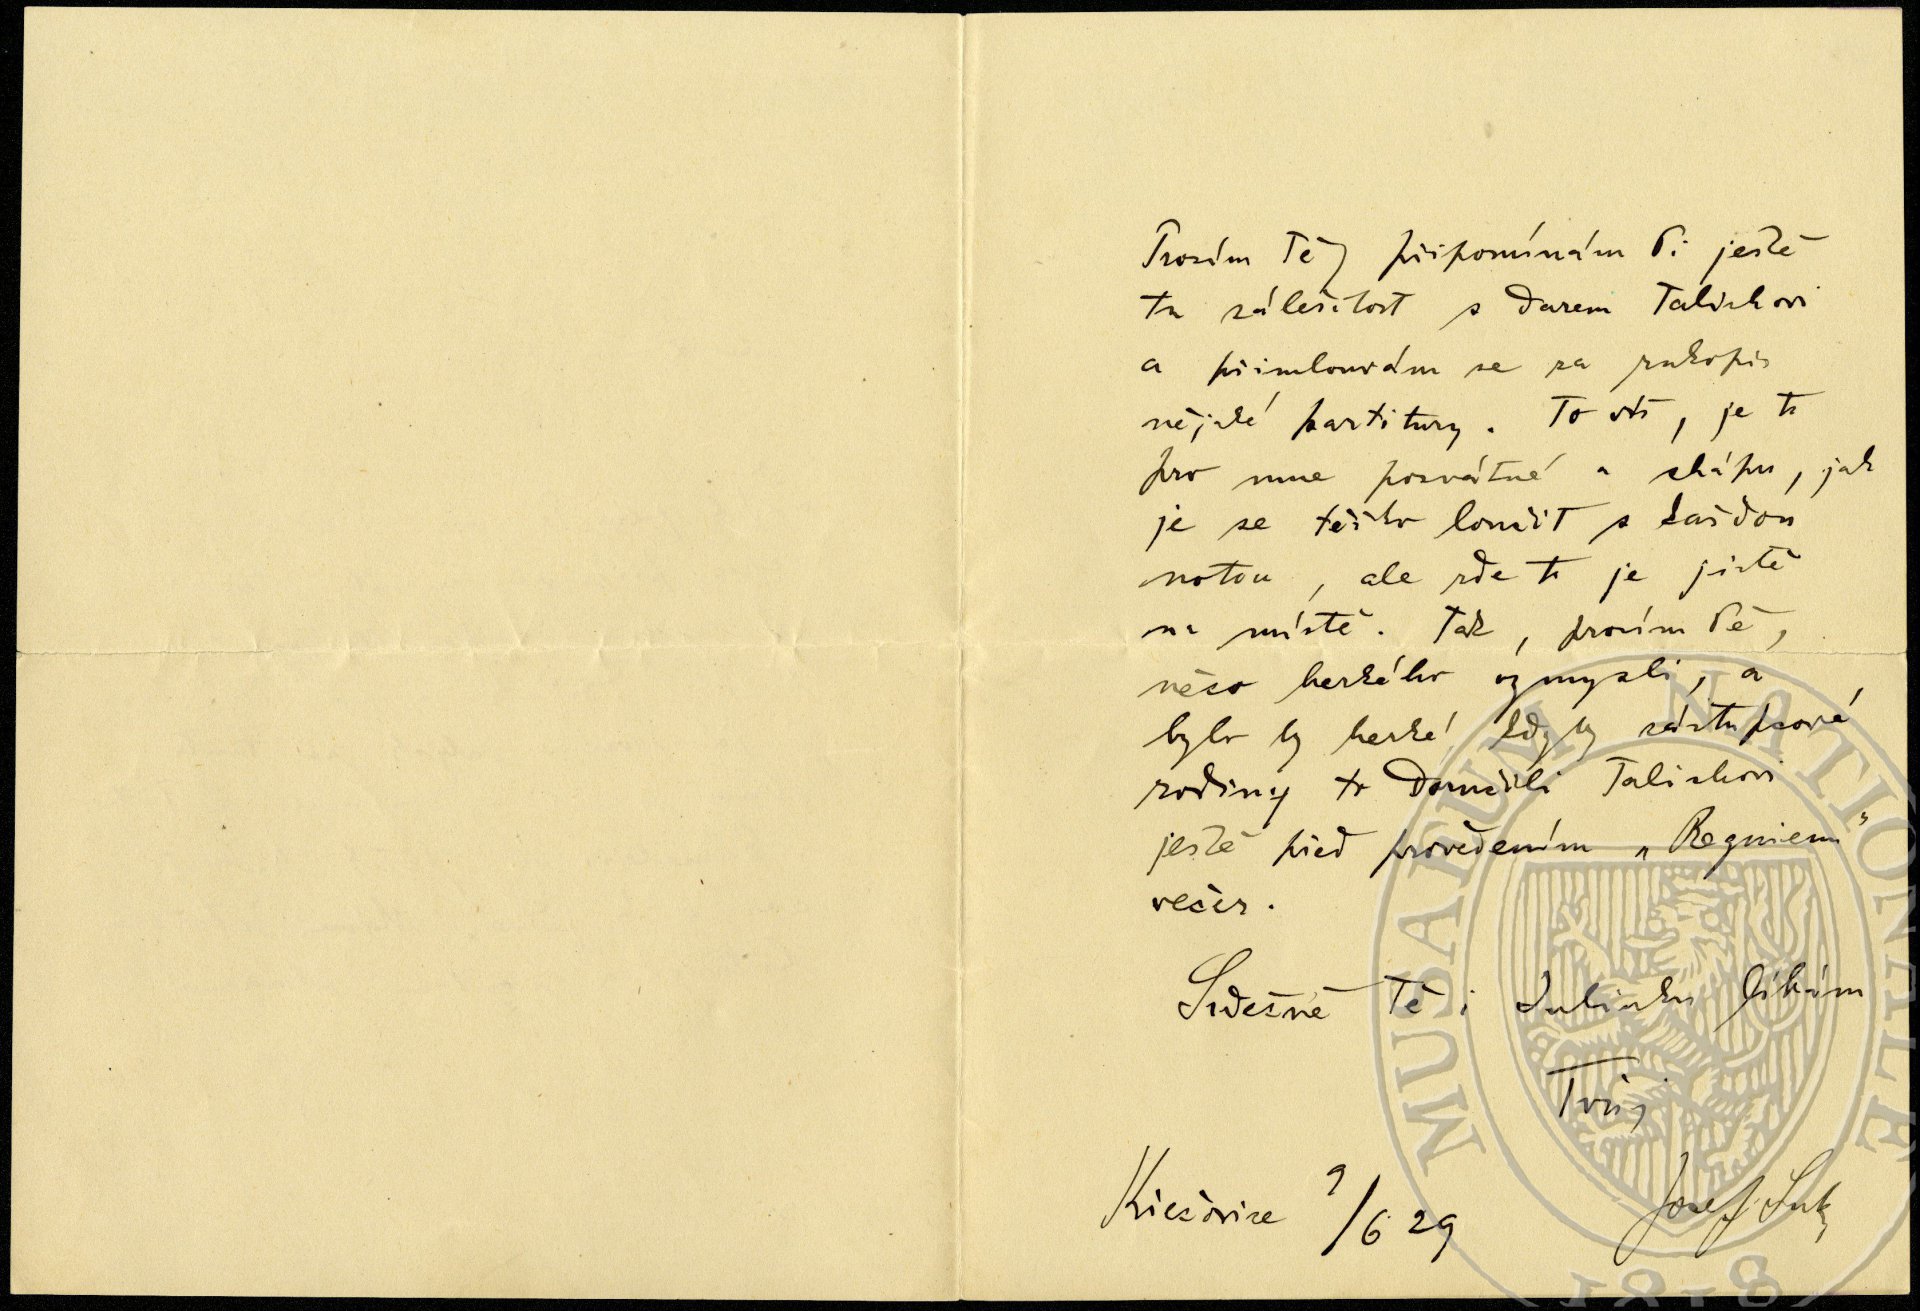 Prosím Tě, připomínám Ti ještě
tu záležitost s darem Talichovi
a přimlouvám se za rukopis
nějaké partitury. To víš, je to
pro mne posvátné a chápu, jak
je se těžko loučit s každou
notou, ale zde to je jistě
na místě. Tak, prosím Tě,
něco hezkého vymysli, a
bylo by hezké kdyby zástupcové
rodiny to doručili Talichovi
ještě před provedením „Requiem"
večer.
Srdečně Tě i líbám
Tvůj
Křečovice 9/6 29
Josef Suk
MUSAEUM NATIONALE
1818